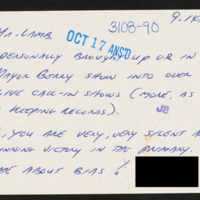 3108-90
9-14
Mr. Lamb,
OCT 17 ANS'D
PERSONALLY BROUGHT UP OR IN
MAYOR BERRY SHOWN INTO OVER
LIVE CALL-IN SHOWS (MORE, AS
KEEPING RECORDS).
JB
, YOU ARE VERY, VERY SILENT A
NNING VICTORY IN THE PRIMARY.
ME ABOUT BIAS!